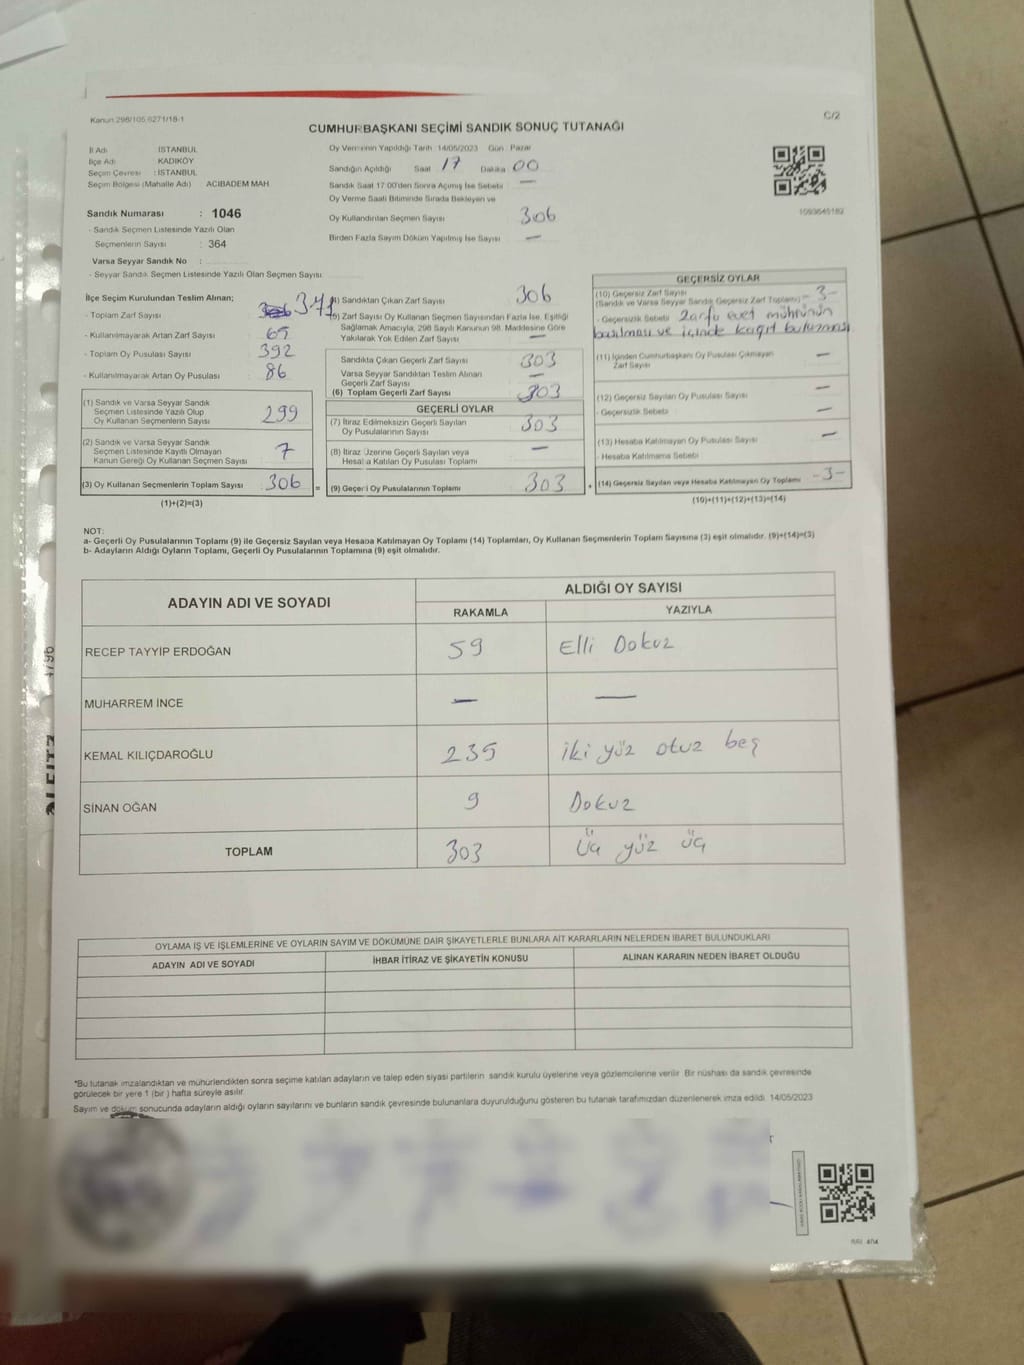 Kanun:298/105,6271/18-1
C/2
CUMHURBAŞKANI SEÇİMİ SANDIK SONUÇ TUTANAĞI
İl Adı : İSTANBUL
İlçe Adı : KADIKÖY
Seçim Çevresi : İSTANBUL
Seçim Bölgesi (Mahalle Adı) ACIBADEM MAH
Sandık Numarası : 1046
- Sandık Seçmen Listesinde Yazılı Olan
Seçmenlerin Sayısı : 364
Varsa Seyyar Sandık No :
- Seyyar Sandık Seçmen Listesinde Yazılı Olan Seçmen Sayısı
Oy Vermenin Yapıldığı Tarih 14/05/2023 Gün Pazar
Sandığın Açıldığı Saat 17 Dakika 00
Sandık Saat 17:00'den Sonra Açılmış İse Sebebi —
Oy Verme Saati Bitiminde Sırada Bekleyen ve
Oy Kullandırılan Seçmen Sayısı 306
Birden Fazla Sayım Döküm Yapılmış İse Sayısı —
İlçe Seçim Kurulundan Teslim Alınan;
- Toplam Zarf Sayısı 371
- Kullanılmayarak Artan Zarf Sayısı 65
- Toplam Oy Pusulası Sayısı 392
- Kullanılmayarak Artan Oy Pusulası 86
(1) Sandık ve Varsa Seyyar Sandık
Seçmen Listesinde Yazılı Olup
Oy Kullanan Seçmenlerin Sayısı 299
(2) Sandık ve Varsa Seyyar Sandık
Seçmen Listesinde Kayıtlı Olmayan
Kanun Gereği Oy Kullanan Seçmen Sayısı 7
(3) Oy Kullanan Seçmenlerin Toplam Sayısı 306
(1)+(2)=(3)
(4) Sandıktan Çıkan Zarf Sayısı 306
(5) Zarf Sayısı Oy Kullanan Seçmen Sayısından Fazla İse, Eşitliği
Sağlamak Amacıyla, 298 Sayılı Kanunun 98. Maddesine Göre
Yakılarak Yok Edilen Zarf Sayısı —
Sandıkta Çıkan Geçerli Zarf Sayısı 303
Varsa Seyyar Sandıktan Teslim Alınan
Geçerli Zarf Sayısı —
(6) Toplam Geçerli Zarf Sayısı 303
GEÇERLİ OYLAR
(7) İtiraz Edilmeksizin Geçerli Sayılan
Oy Pusulalarının Sayısı 303
(8) İtiraz Üzerine Geçerli Sayılan veya
Hesaba Katılan Oy Pusulası Toplamı —
= (9) Geçerli Oy Pusulalarının Toplamı 303
GEÇERSİZ OYLAR
(10) Geçersiz Zarf Sayısı
(Sandık ve Varsa Seyyar Sandık Geçersiz Zarf Toplamı) -3-
- Geçersizlik Sebebi Zarfa evet mührünün
basılması ve içinde kağıt bulunması
(11) İçinden Cumhurbaşkanı Oy Pusulası Çıkmayan
Zarf Sayısı —
(12) Geçersiz Sayılan Oy Pusulası Sayısı —
- Geçersizlik Sebebi —
(13) Hesaba Katılmayan Oy Pusulası Sayısı —
- Hesaba Katılmama Sebebi
+ (14) Geçersiz Sayılan veya Hesaba Katılmayan Oy Toplamı -3-
(10)+(11)+(12)+(13)=(14)
NOT:
a- Geçerli Oy Pusulalarının Toplamı (9) ile Geçersiz Sayılan veya Hesaba Katılmayan Oy Toplamı (14) Toplamları, Oy Kullanan Seçmenlerin Toplam Sayısına (3) eşit olmalıdır. (9)+(14)=(3)
b- Adayların Aldığı Oyların Toplamı, Geçerli Oy Pusulalarının Toplamına (9) eşit olmalıdır.
ADAYIN ADI VE SOYADI ALDIĞI OY SAYISI
RAKAMLA YAZIYLA
RECEP TAYYİP ERDOĞAN 59 Elli Dokuz
MUHARREM İNCE — —
KEMAL KILIÇDAROĞLU 235 iki yüz otuz beş
SİNAN OĞAN 9 Dokuz
TOPLAM 303 Üç yüz üç
OYLAMA İŞ VE İŞLEMLERİNE VE OYLARIN SAYIM VE DÖKÜMÜNE DAİR ŞİKAYETLERLE BUNLARA AİT KARARLARIN NELERDEN İBARET BULUNDUKLARI
ADAYIN ADI VE SOYADI İHBAR İTİRAZ VE ŞİKAYETİN KONUSU ALINAN KARARIN NEDEN İBARET OLDUĞU
*Bu tutanak imzalandıktan ve mühürlendikten sonra seçime katılan adayların ve talep eden siyasi partilerin sandık kurulu üyelerine veya gözlemcilerine verilir. Bir nüshası da sandık çevresinde
görülecek bir yere 1 (bir ) hafta süreyle asılır.
Sayım ve döküm sonucunda adayların aldığı oyların sayılarını ve bunların sandık çevresinde bulunanlara duyurulduğunu gösteren bu tutanak tarafımızdan düzenlenerek imza edildi. 14/05/2023